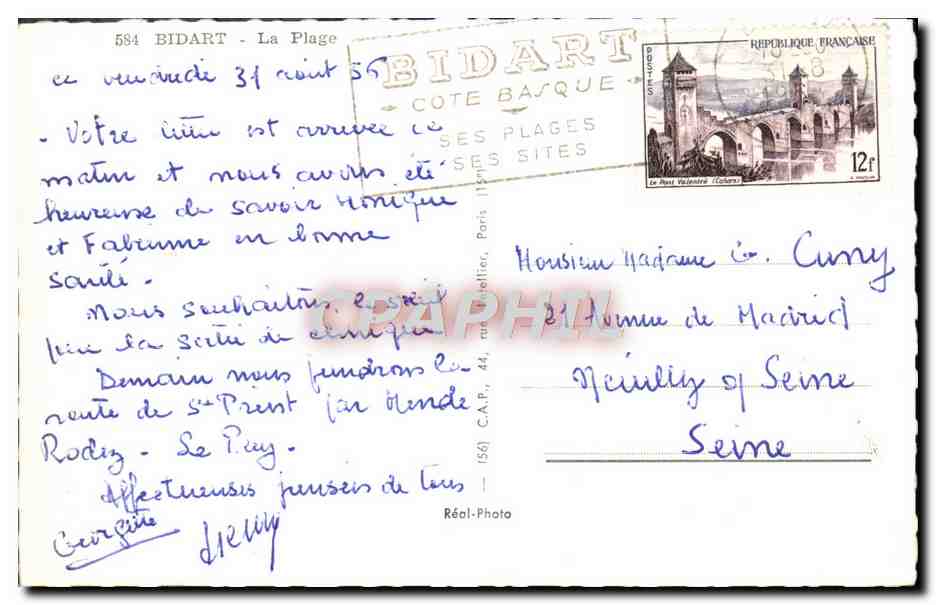 584 BIDART - La Plage
ce vendredi 31 août 56
- Votre lettre est arrivée ce
matin et nous avons été
heureuse de savoir Monique
et Fabienne en bonne
santé.
Nous souhaitons le soleil
pour la sortie de clinique
Demain nous prendrons la
route de St Priest par Mende
Rodez - Le Puy.
Affectueuses pensées de tous
Georgette
BIDART
COTE BASQUE
SES PLAGES
SES SITES
POSTES
REPUBLIQUE FRANÇAISE
Le Pont Valentré (Cahors)
12f
(56) C.A.P., 44, rue Letellier, Paris (15e)
Réal-Photo
CPAPHIL
Monsieur Madame Cuny
21 Avenue de Madrid
Neuilly s/ Seine
Seine